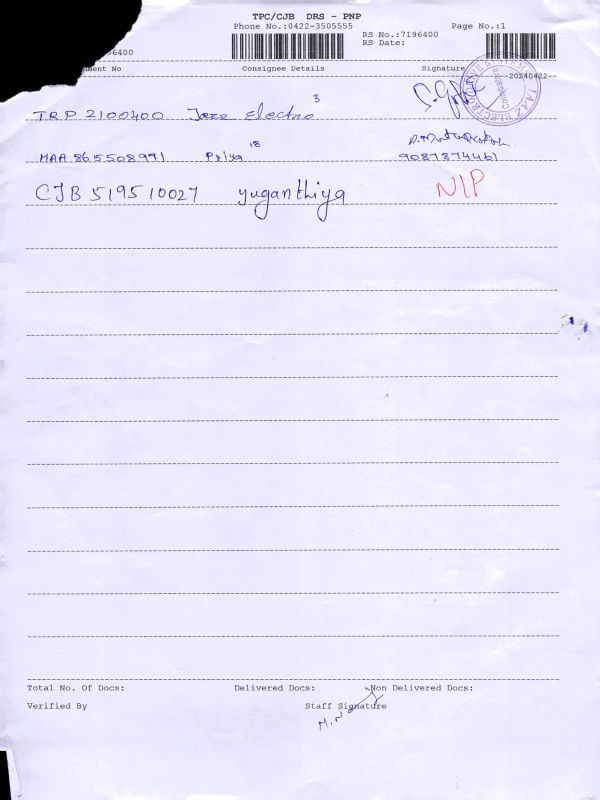 TPC/CJB DRS - PNP
Phone No.:0422-3505555 Page No.:1
RS No.:7196400
RS Date:
96400
ment No Consignee Details Signature
20240422
TRP 2100400 Electro 3
MAA 865508991 Priya 18
9087874461
CJB 519510027 yuganthiya NIP
Total No. Of Docs: Delivered Docs: Non Delivered Docs:
Verified By Staff Signature